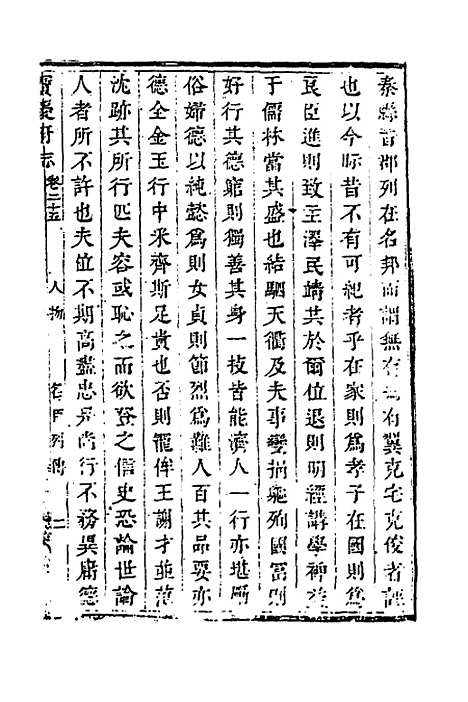 秦縣晉郡列在名邦而謂無存有冀克宅克俊者誰
也以今眎昔不有可祀者乎在家則為孝子在國則為
良臣進則致主澤民靖共於爾位退則明經講學裨
于儒林當其盛也結駟天衢及夫事變捐軀殉國富則
好行其德窮則獨善其身一技皆能濟人一行亦堪
俗婦德以純懿為則女貞則節烈為難人百其品要亦
德全金玉行中采齊斯足貴也否則寵侔王謝才並范
沈跡其所行匹夫容或恥之而欲登之信史恐論世論
人者所不許也夫位不期高盡忠是尚行不務異庸德
府志 卷二十五 人物 列傳 二